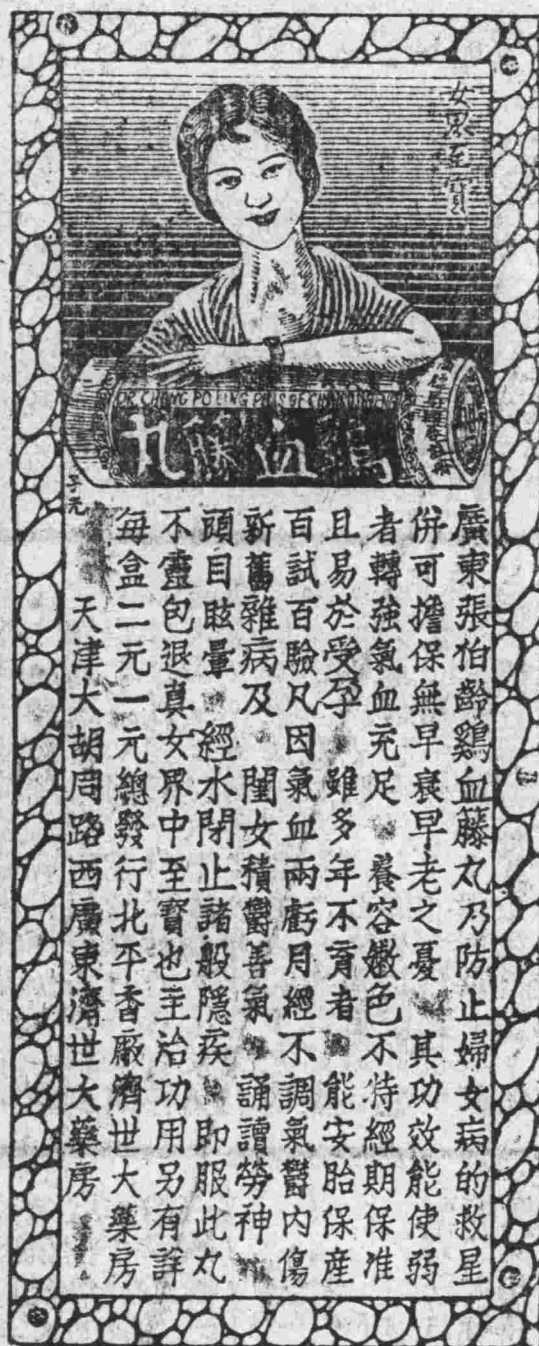 女界至寶
DR CHONG PO LING PILLS OF
鷄血藤丸
子元
廣東張伯齡鷄血藤丸乃防止婦女病的救星
併可擔保無早衰早老之憂 其功效能使弱
者轉強氣血充足 養容嫩色不特經期保准
且易於受孕 雖多年不育者 能安胎保產
百試百驗凡因氣血兩虧月經不調氣鬱內傷
新舊雜病及 閨女積鬱善氣 誦讀勞神
頭目眩暈 經水閉止諸般隱疾 即服此丸
不靈包退真女界中至寶也主治功用另有詳
每盒二元一元總發行北平香廠濟世大藥房
天津大胡同路西廣東濟世大藥房